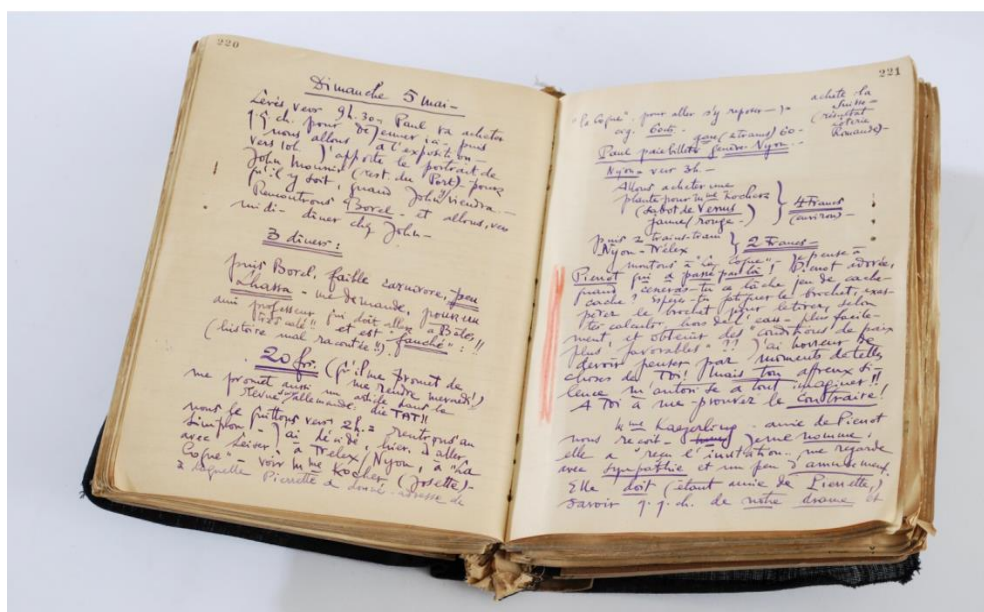 220
Dimanche 5 mai -
Levés vers 9h.30 - Paul va acheter
q.q ch. pour déjeuner ici - puis
nous allons à l'exposition -
vers 10h J'apporte le portrait de
John Mounier (rest. du Port) pour
qu'il y soit, quand John viendra -
Rencontrons Borel - et allons, vers
midi - dîner chez John -
3 dîners :
puis Borel, faible carnivore, peu
- me demande, pour un
ami professeur qui doit aller à Bâle,
"très calé" et est "fauché" : !!
(histoire mal racontée !!).
20 frs. (qu'il me promet de
me rendre mercredi !)
me promet aussi un article dans la
Revue allemande : die TAT !!
nous le quittons vers 2h. rentrons au
Simplon - J'ai décidé, hier, d'aller
avec à Trélex, Nyon, à "La
Coque" - voir Mme Kocher (Josette) -
à laquelle Pierrette a donné adresse de
221
"la Coque" pour aller s'y reposer -
cig. 60cts.
acheté la
Suisse -
(résultat
loterie
Romande) -
(2 trams) 60 -
Paul paie billets Genève - Nyon -
Nyon - vers 3h -
Allons acheter une
plante pour Mme Kocher
(Sabot de Venus
jaune/rouge -)
4 Francs
(environ) -
puis 2 train-tram
Nyon - Trélex
2 Francs -
montons à "La Coque" - Je pense à
Pierrot qui a passé par là ! Pierrot adorée,
quand cesseras-tu ce lâche jeu de cache-
cache ? espères-tu fatiguer le brochet, exas-
pérer le brochet pour le tirer, selon
tes calculs, hors de l'eau - plus facile-
ment, et obtenir des "conditions de paix
plus favorables" ?? J'ai horreur de
devoir penser par moments de telles
choses de Toi ! mais ton affreux si-
lence m'autorise à tout imaginer !!
A Toi à me prouver le contraire !
Mme - amie de Pierrot
nous reçoit - Je me nomme,
elle a "reçu l'invitation - me regarde
avec sympathie et un peu d'amusement.
Elle doit (étant amie de Pierrette,)
savoir q.q. ch. de notre drame et